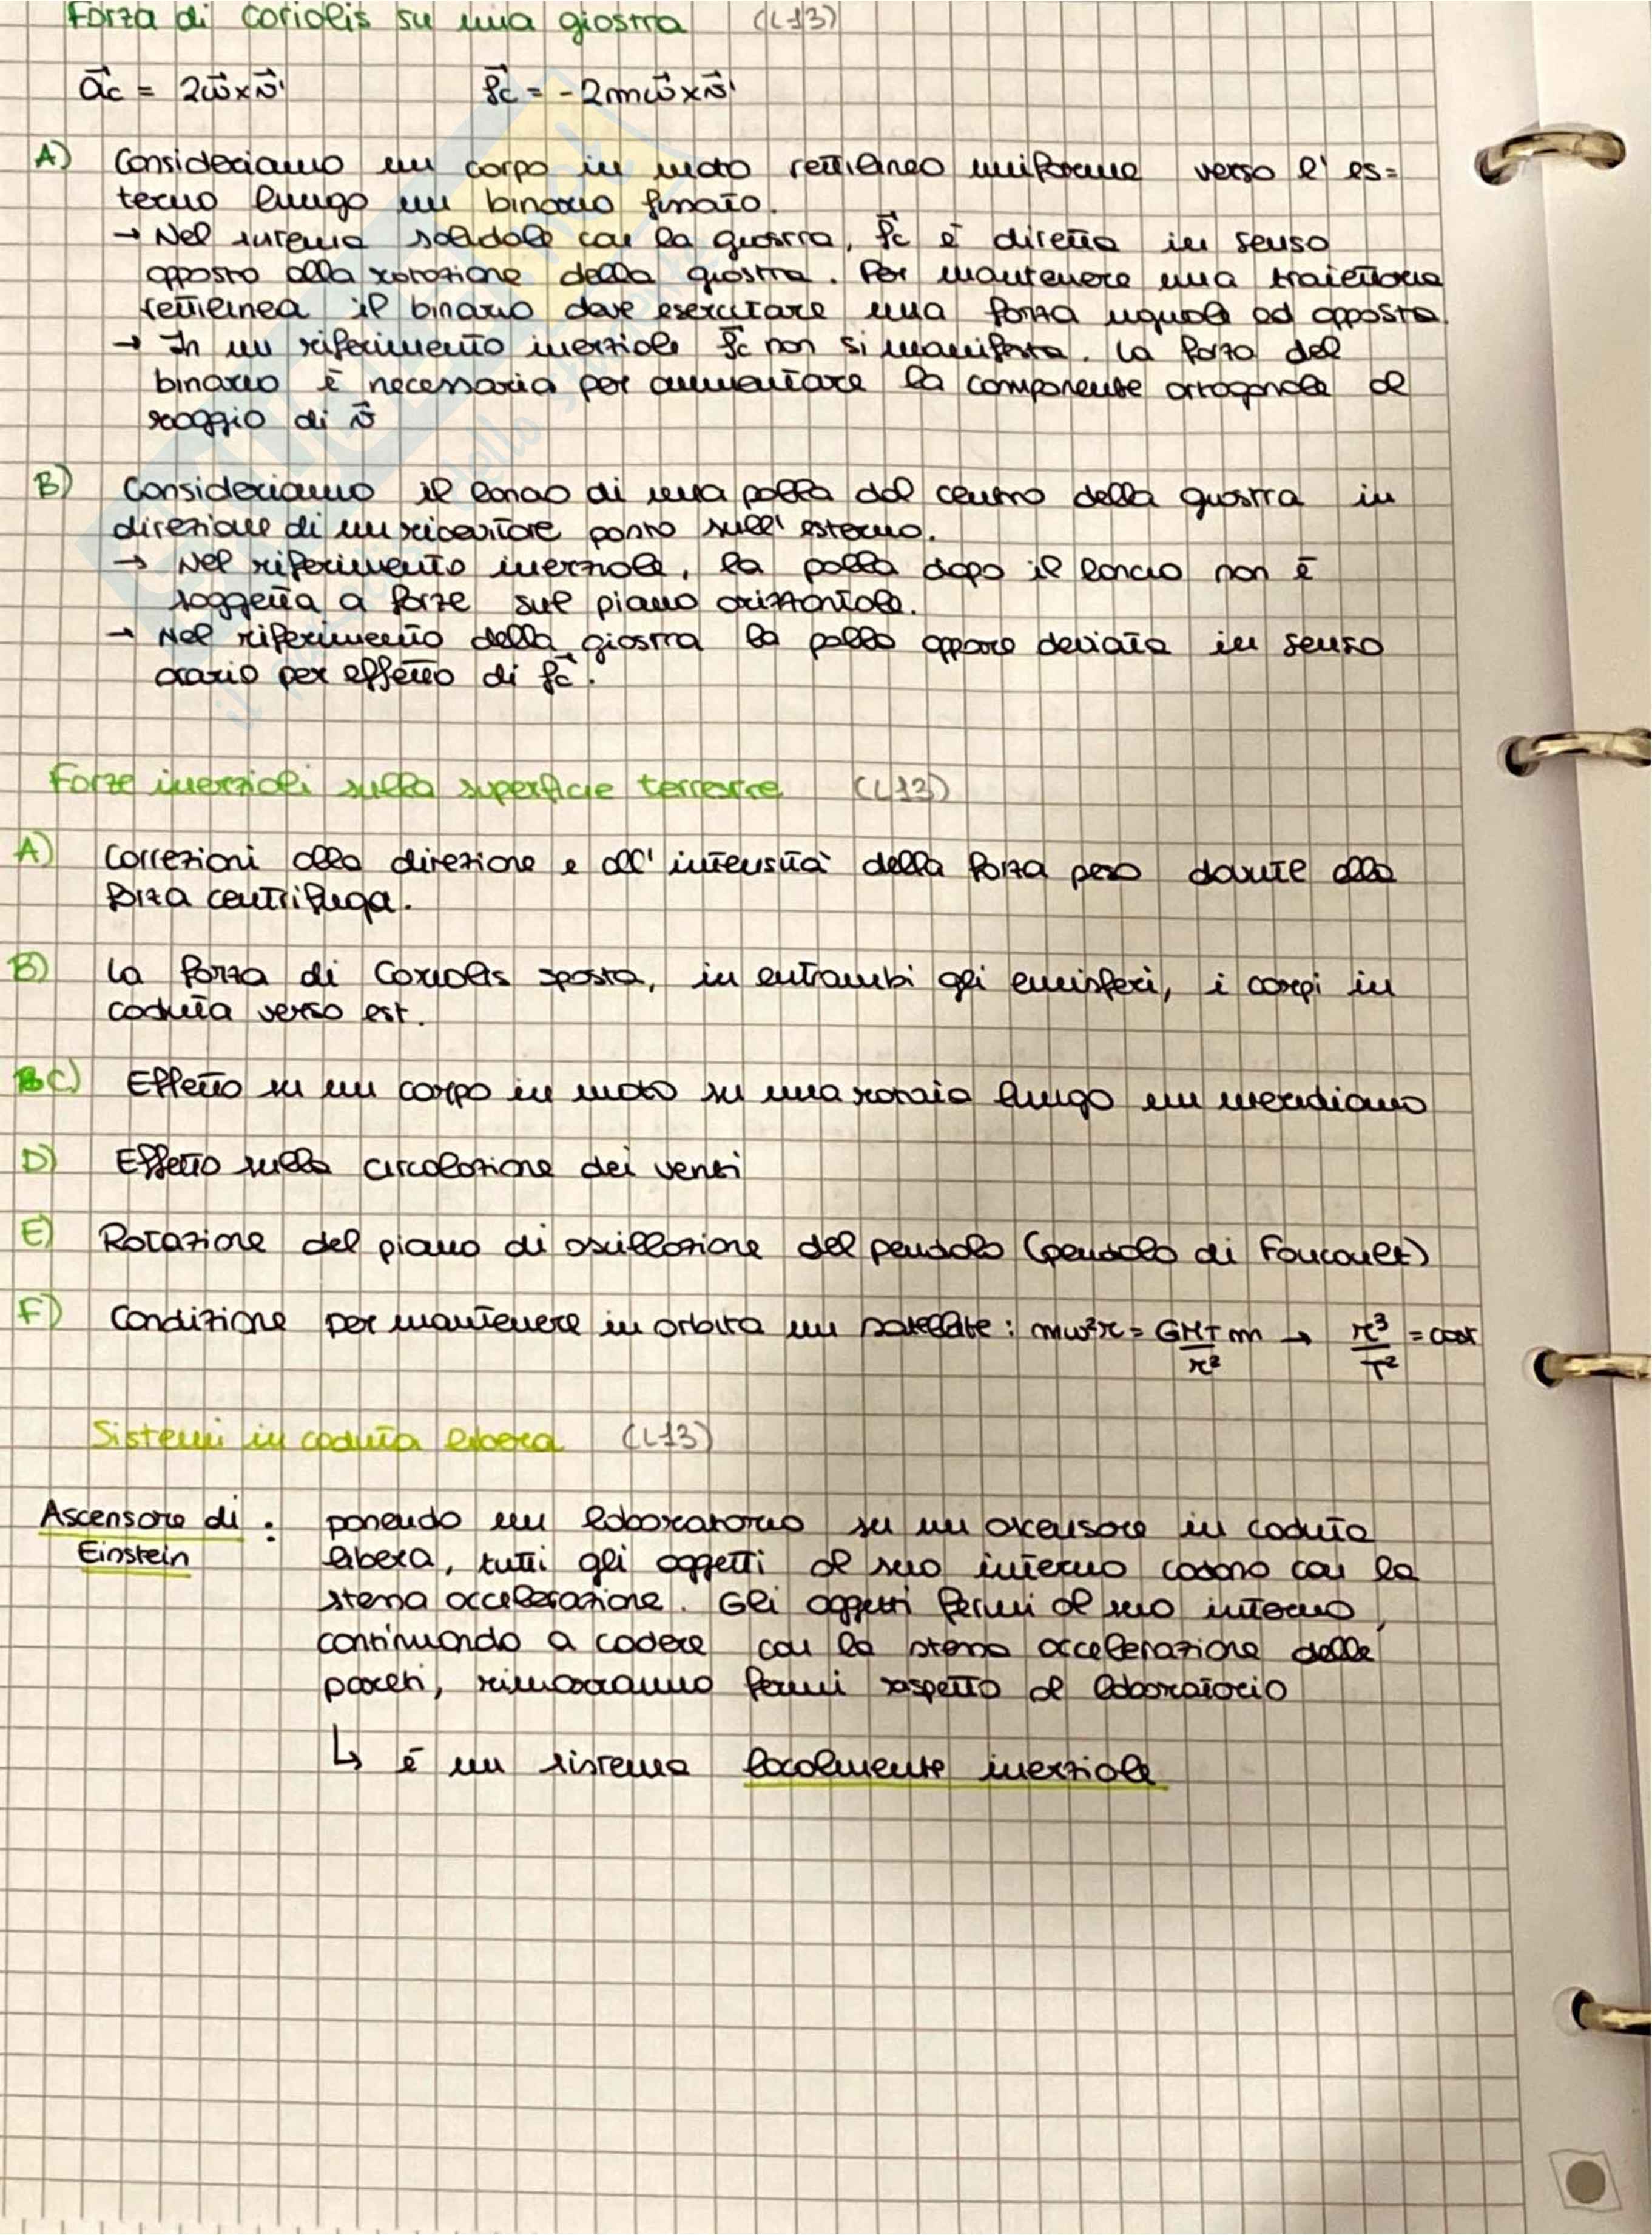 Forza di Coriolis su una giostra (L13)
a⃗c = 2ω⃗×v⃗' f⃗c = -2mω⃗×v⃗'
A) Consideriamo un corpo in moto rettilineo uniforme verso l'es=
terno lungo un binario fissato.
→ Nel sistema solidale con la giostra, f⃗c è diretta in senso
opposto alla rotazione della giostra. Per mantenere una traiettoria
rettilinea il binario deve esercitare una forza uguale ed opposta
→ In un riferimento inerziale f⃗c non si manifesta. La forza del
binario è necessaria per aumentare la componente ortogonale al
raggio di v⃗
B) Consideriamo il lancio di una palla dal centro della giostra in
direzione di un ricevitore posto sull'esterno.
→ Nel riferimento inerziale, la palla dopo il lancio non è
soggetta a forze sul piano orizzontale.
→ Nel riferimento della giostra la palla appare deviata in senso
orario per effetto di f⃗c.
Forze inerziali sulla superficie terrestre (L13)
A) Correzioni alla direzione e all'intensità della forza peso dovute alla
forza centrifuga.
B) La forza di Coriolis sposta, in entrambi gli emisferi, i corpi in
caduta verso est.
C) Effetto su un corpo in moto su una rotaia lungo un meridiano
D) Effetto sulla circolazione dei venti
E) Rotazione del piano di oscillazione del pendolo (pendolo di Foucault)
F) Condizione per mantenere in orbita un satellite: mω²r = GMTm/r² → r³/T² = cost
Sistemi in caduta libera (L13)
Ascensore di Einstein : ponendo un laboratorio su un ascensore in caduta
libera, tutti gli oggetti al suo interno cadono con la
stessa accelerazione. Gli oggetti fermi al suo interno,
continuando a cadere con la stessa accelerazione delle
pareti, rimarranno fermi rispetto al laboratorio
↳ è un sistema localmente inerziale